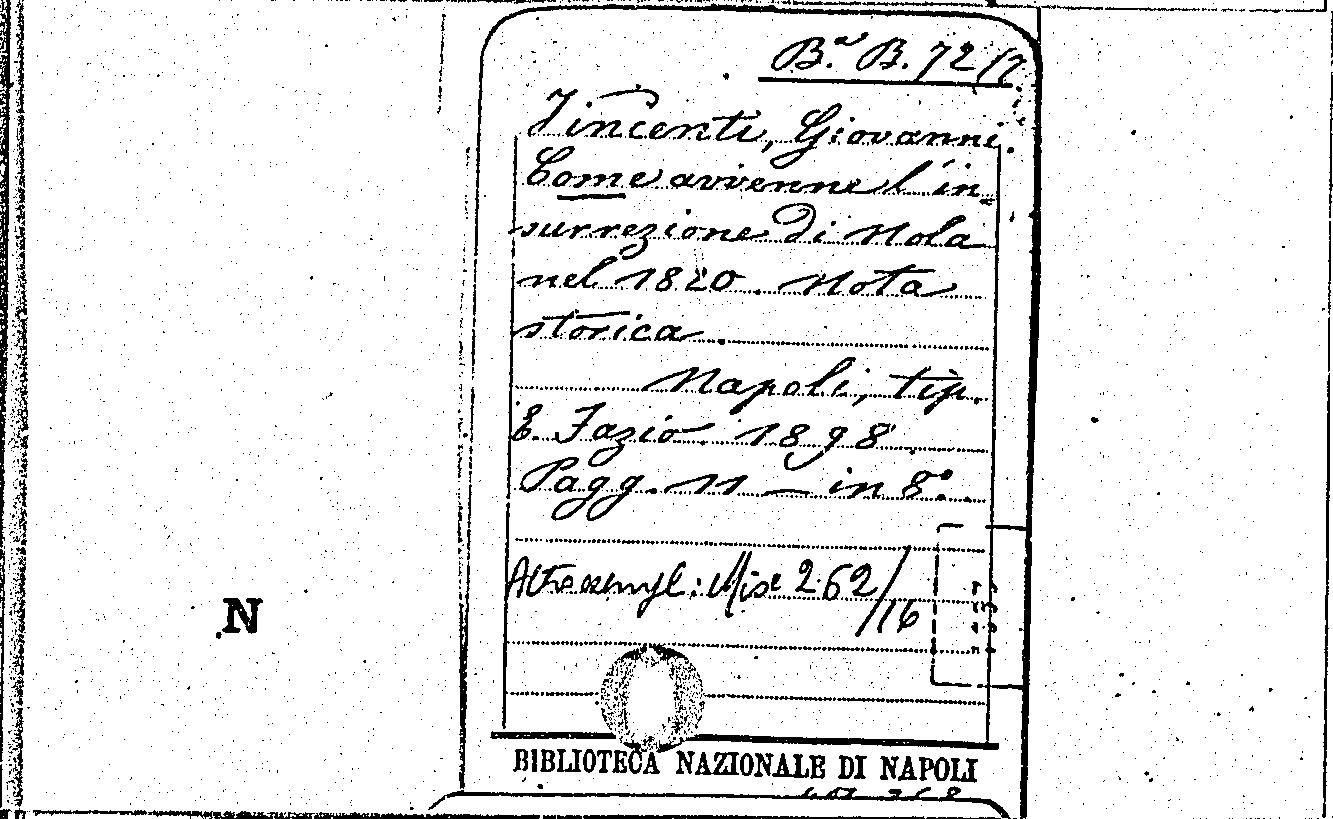 Bª B. 72/7
Vincenti, Giovanni.
Come avvenne l'in-
surrezione di Nola
nel 1820. Nota
storica.
Napoli, tip.
E. Fazio 1898
Pagg. 11 — in 8°.
Altro esempl: Misc 262/16
N
BIBLIOTECA NAZIONALE DI NAPOLI